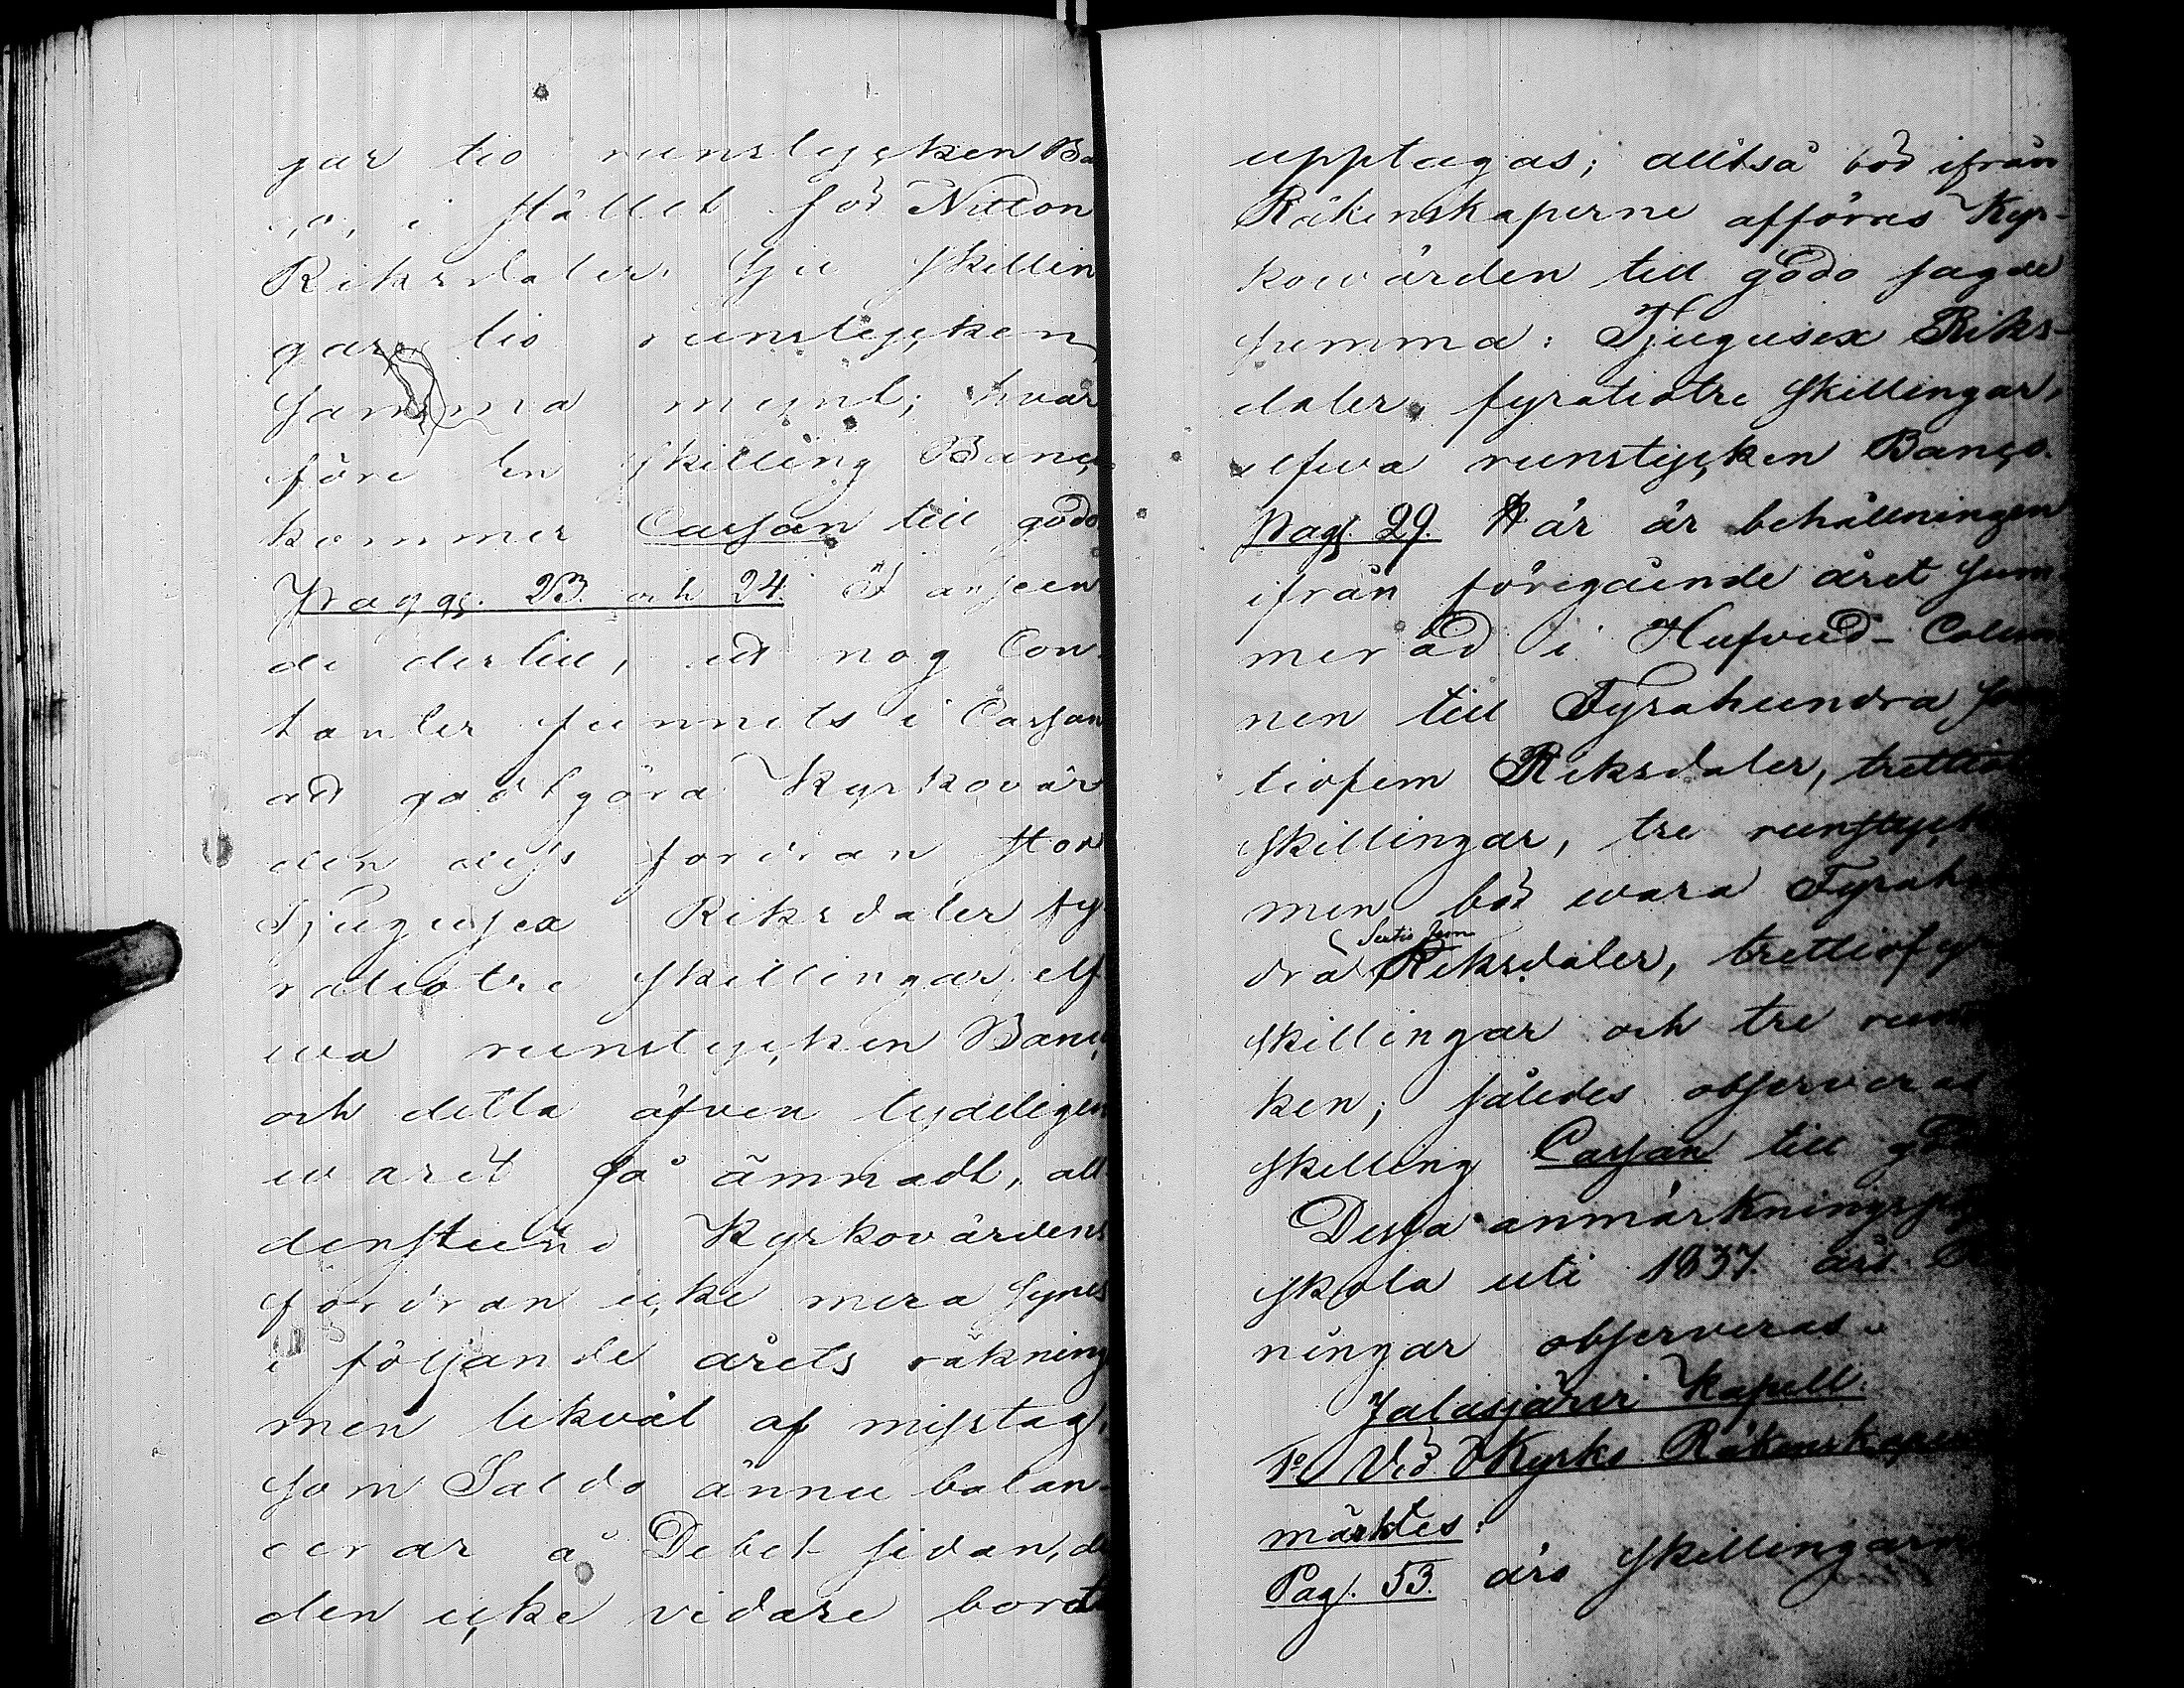 gar tio runstycken Ba
co, i stället för Nitton
Riksdaler sju skillin
gar tio runstycken
samma mynt; hvar
före en skilling Banco
kommer Cassan till godo
Pagg. 23. och 24. I anseen
de dertill, att nog Con
tanter funnits i Cassan
att godtgöra Kyrkovär
den dess fordran stor
Tjugusex Riksdaler fy
ratiotre skillingar elf
wa runstycken Banco
och detta äfven tydeligen
warit så ämnadt, all
denstund Kyrkovärdens
fordran icke mera synes
i följande årets räkning
men likväl af misstag,
som Saldo ännu balan-
cerar å Debet sidan, de
den icke vidare bordt
upptagas; alltså bör ifrån
Räkenskaperne afföras Kyr-
kowärden till godo sagde
summa: Tjugusex Riks-
daler, fyratiotre skillingar,
elfwa runstycken Banco.
Pag. 29. Här är behållningen
ifrån föregående året sum
merad i Hufvud-Colum
nen till Fyrahundra sex
tiofem Riksdaler, trettio
skillingar, tre runstyck
men bör wara Fyrahun
dra Sextiofem Riksdaler, trettiofyr
skillingar och tre runst
ken; således observeras
skilling Cassan till godo
Dessa anmärkningar
skola uti 1837. års Rä
ningar observeras.
Jalasjärvi Kapell.
1o Vid Kyrko Räkenskapen
märktes:
Pag. 53. äro skillingarn